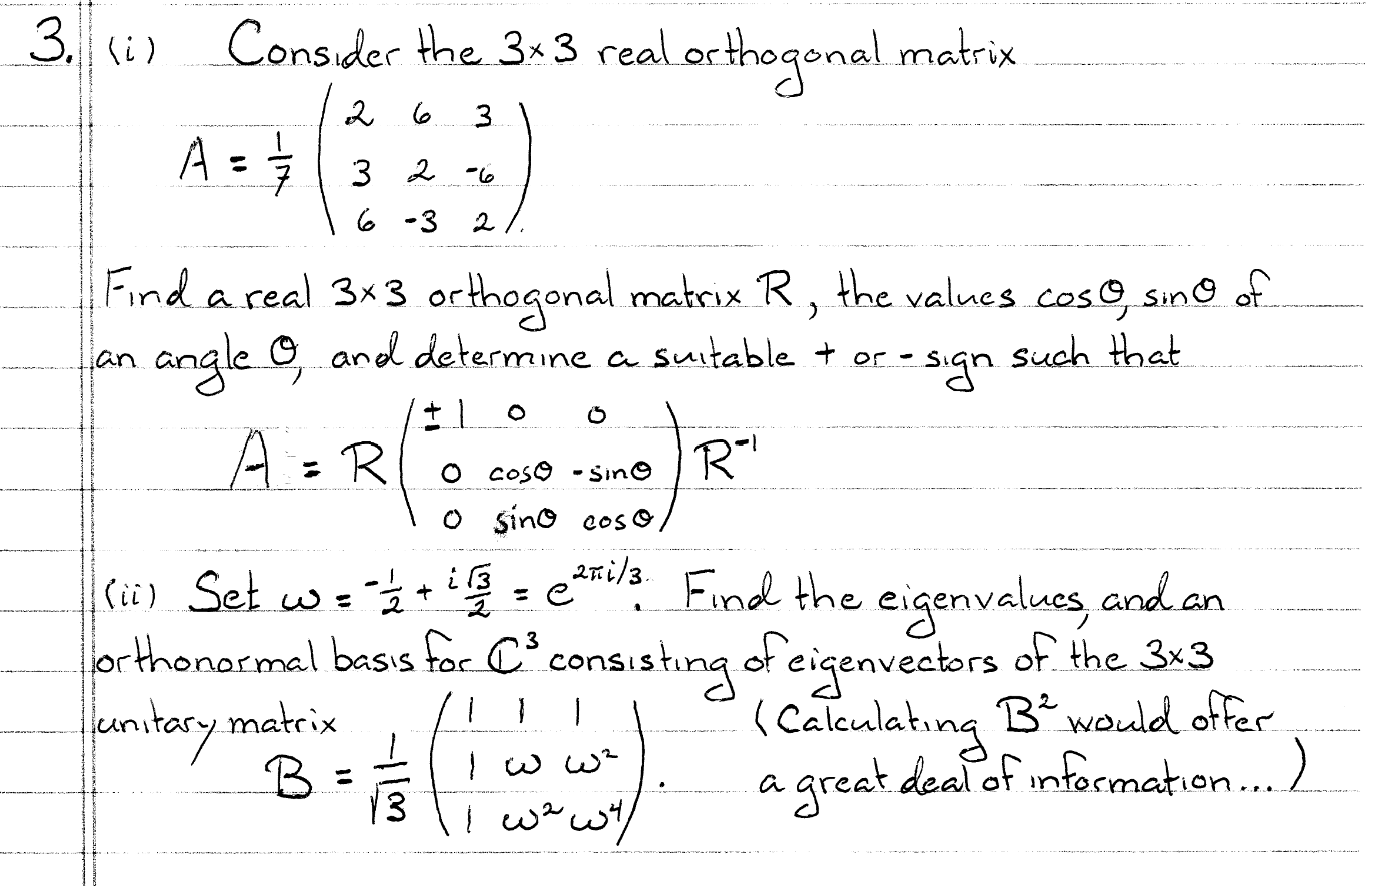 3. (i) Consider the 3×3 real orthogonal matrix
A = 1/7 ( 2 6 3
3 2 -6
6 -3 2 ).
Find a real 3×3 orthogonal matrix R, the values cosθ, sinθ of
an angle θ, and determine a suitable + or - sign such that
A = R ( ±1 0 0
0 cosθ -sinθ
0 sinθ cosθ ) R⁻¹
(ii) Set ω = -1/2 + i√3/2 = e^{2πi/3}. Find the eigenvalues, and an
orthonormal basis for ℂ³ consisting of eigenvectors of the 3×3
unitary matrix
B = 1/√3 ( 1 1 1
1 ω ω²
1 ω² ω⁴ ).
(Calculating B² would offer
a great deal of information...)